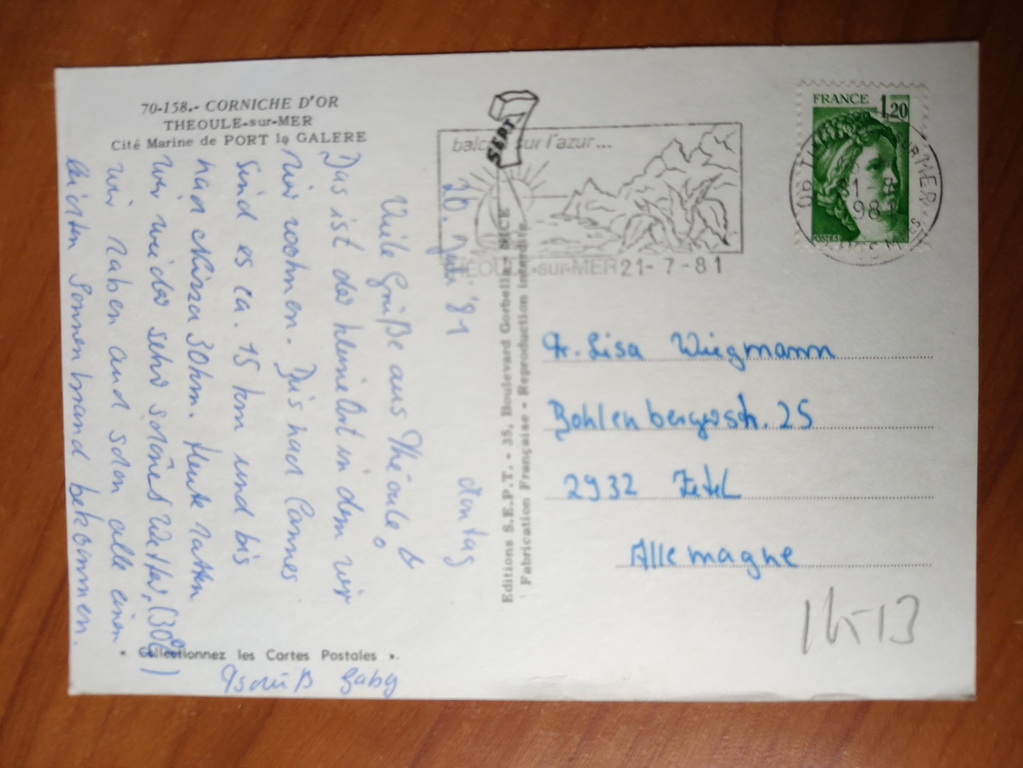 70-158.- CORNICHE D'OR
THEOULE-sur-MER
Cité Marine de PORT la GALERE
SEPT
balcon sur l'azur...
THEOULE-sur-MER 21-7-81
FRANCE 1,20
POSTES
Editions S.E.P.T. - 35, Boulevard Gorbella - NICE
Fabrication Française - Reproduction interdite
20. Juli '81 Montag
Viele Grüße aus Théoule
Das ist der kleine Ort in dem wir
hier wohnen. Bis nach Cannes
sind es ca. 15 km und bis
nach Nizza 30km. Heute hatten
wir wieder sehr schönes Wetter, (30°C)
wir haben auch schon alle einen
leichten Sonnenbrand bekommen.
Tschüß Gaby
« Collectionnez les Cartes Postales ».
Fr. Lisa Wiegmann
Bohlenbergerstr. 25
2932 Zetel
Allemagne